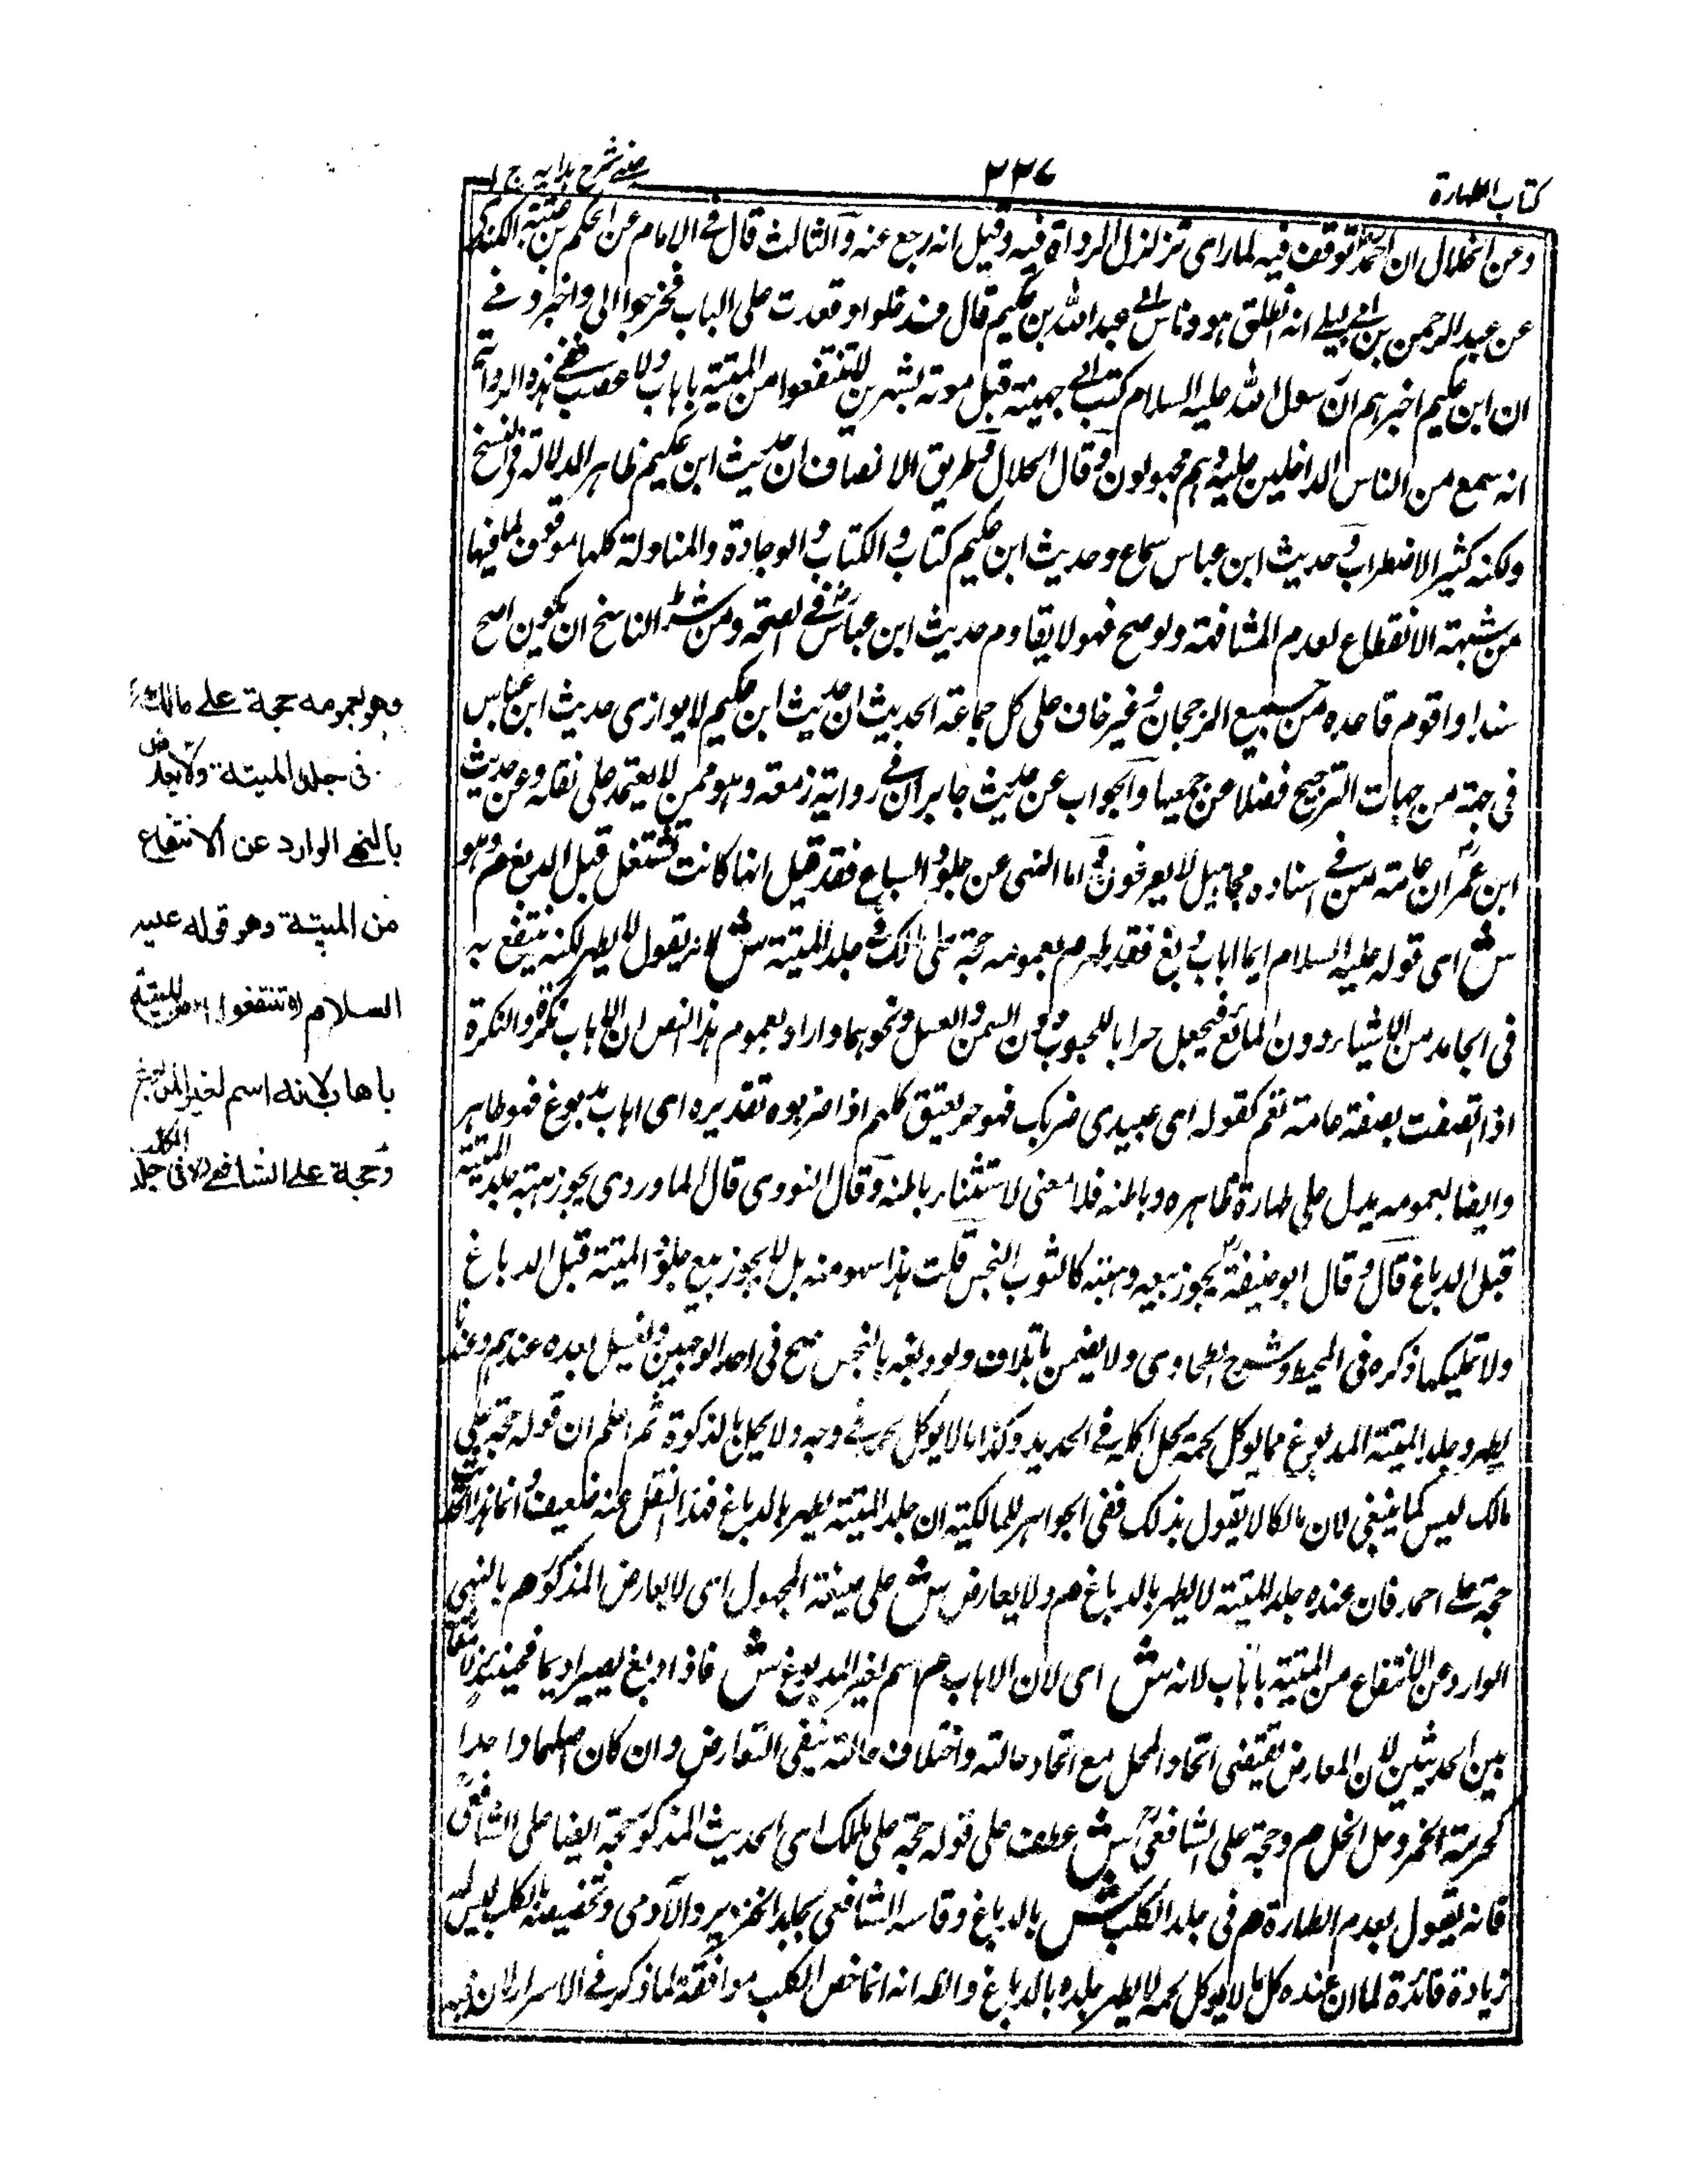 كتاب الطهارة
٢٣٧
عيني شرح هدايه ج ١
وعن الخلال ان احمد توقف فيه لما راى تزلزل الرواة فيه وقيل انه رجع عنه والثالث قال في الامام عن الحكم بن عتيبة الكندى
عن عبد الرحمن بن ابي ليلى انه انطلق هو وناس الى عبد الله بن عكيم قال فدخلوا وقعدت على الباب فخرجوا الى واخبرونى
ان ابن عكيم اخبرهم ان رسول الله عليه السلام كتب الى جهينة قبل موته بشهرين لا تنتفعوا من الميتة باهاب ولا عصب ففى هذه الرواية
انه سمع من الناس الداخلين عليه وهم مجهولون وقال الخلال وطريق الانصاف ان حديث ابن عكيم ظاهر الدلالة فى النسخ
ولكنه كثير الاضطراب وحديث ابن عباس سماع وحديث ابن عكيم كتاب والكتاب والوجادة والمناولة كلها موقوف لما فيها
من شبهة الانقطاع لعدم المشافهة ولو صح فهو لا يقاوم حديث ابن عباس فى الصحة ومن شرط الناسخ ان يكون اصح
سندا واقوم قاعدة من جميع الرجحان وغير خاف على كل جماعة الحديث ان حديث ابن عكيم لا يوازى حديث ابن عباس
فى جهة من جهات الترجيح فضلا عن جميعها والجواب عن حديث جابر ان فى رواية زمعة وهو ممن لا يعتمد على نقله وعن حديث
ابن عمر ان عامة من فى اسناده مجاهيل لا يعرفون واما النهى عن جلود السباع فقد قيل انها كانت تستعمل قبل الدبغ م وهو
ش اى قوله عليه السلام ايما اهاب دبغ فقد طهر م بعمومه حجة على مالك فى جلد الميتة ش لانه يقول لا يطهر لكنه ينتفع به
فى الجامد من الاشياء دون المائع فيجعل جرابا للحبوب دون السمن والعسل ونحوهما واراد بعموم هذا النص ان الاهاب نكرة والنكرة
اذا اتصفت بصفة عامة تعم كقوله اى عبيدى ضربك فهو حر يعتق كلهم اذا ضربوه تقديره اى اهاب مدبوغ فهو طاهر
وايضا لعمومه يدل على طهارة ظاهره وباطنه فلا معنى لاستثناء باطنه وقال النووى قال الماوردى يجوز هبة جلد الميتة
قبل الدباغ قال وقال ابو حنيفة يجوز بيعه وهبته كالثوب النجس قلت هذا سهو منه بل لا يجوز بيع جلود الميتة قبل الدباغ
ولا تمليكها ذكره فى المحيط وشرح الطحاوى ولا يضمن باتلاف ولو دبغه بالنجس صح فى احد الوجهين ويغسل بعده عندهم وعندنا
يطهر وجلد الميتة المدبوغ مما يوكل لحمه يحل اكله فى الجديد وكذا ما لا يوكل لحمه فى وجه ولا يحل بالذكوة ثم اعلم ان قوله حجة على
مالك ليس كما ينبغى لان مالكا لا يقول بذلك ففى الجواهر للمالكية ان جلد الميتة يطهر بالدباغ فهذا النقل عنه ضعيف وانما هذا
حجة على احمد فان عنده جلد الميتة لا يطهر بالدباغ م ولا يعارض ش على صيغة المجهول اى لا يعارض المذكور م بالنهى
الوارد عن الانتفاع من الميتة باهاب لانه ش اى لان الاهاب م اسم لغير المدبوغ ش فاذا دبغ يصير اديما فحينئذ لا تعارض
بين الحديثين لان المعارض يقتضى اتحاد المحل مع اتحاد حالته واختلاف حالته ينفى التعارض وان كان اصلهما واحدا
كحرمة الخمر وحل الخل م وحجة على الشافعى ش عطف على قوله حجة على مالك اى الحديث المذكور حجة ايضا على الشافعى
فانه يقول بعدم الطهارة م فى جلد الكلب ش بالدباغ وقاسه الشافعى بجلد الخنزير والآدمى وتخصيصه بالكلب ليس له
زيادة فائدة لما ان عنده كل ما لا يوكل لحمه لا يطهر جلده بالدباغ والله انه انما خص الكلب موافقة لما ذكر فى الاسرار لان فيه
وهو بعمومه حجة على مالك
فى جلد الميتة ولا يعارض
بالنهى الوارد عن الانتفاع
من الميتة وهو قوله عليه
السلام لا تنتفعوا من الميتة
باهاب لانه اسم لغير المدبوغ
وحجة على الشافعى فى جلد الكلب